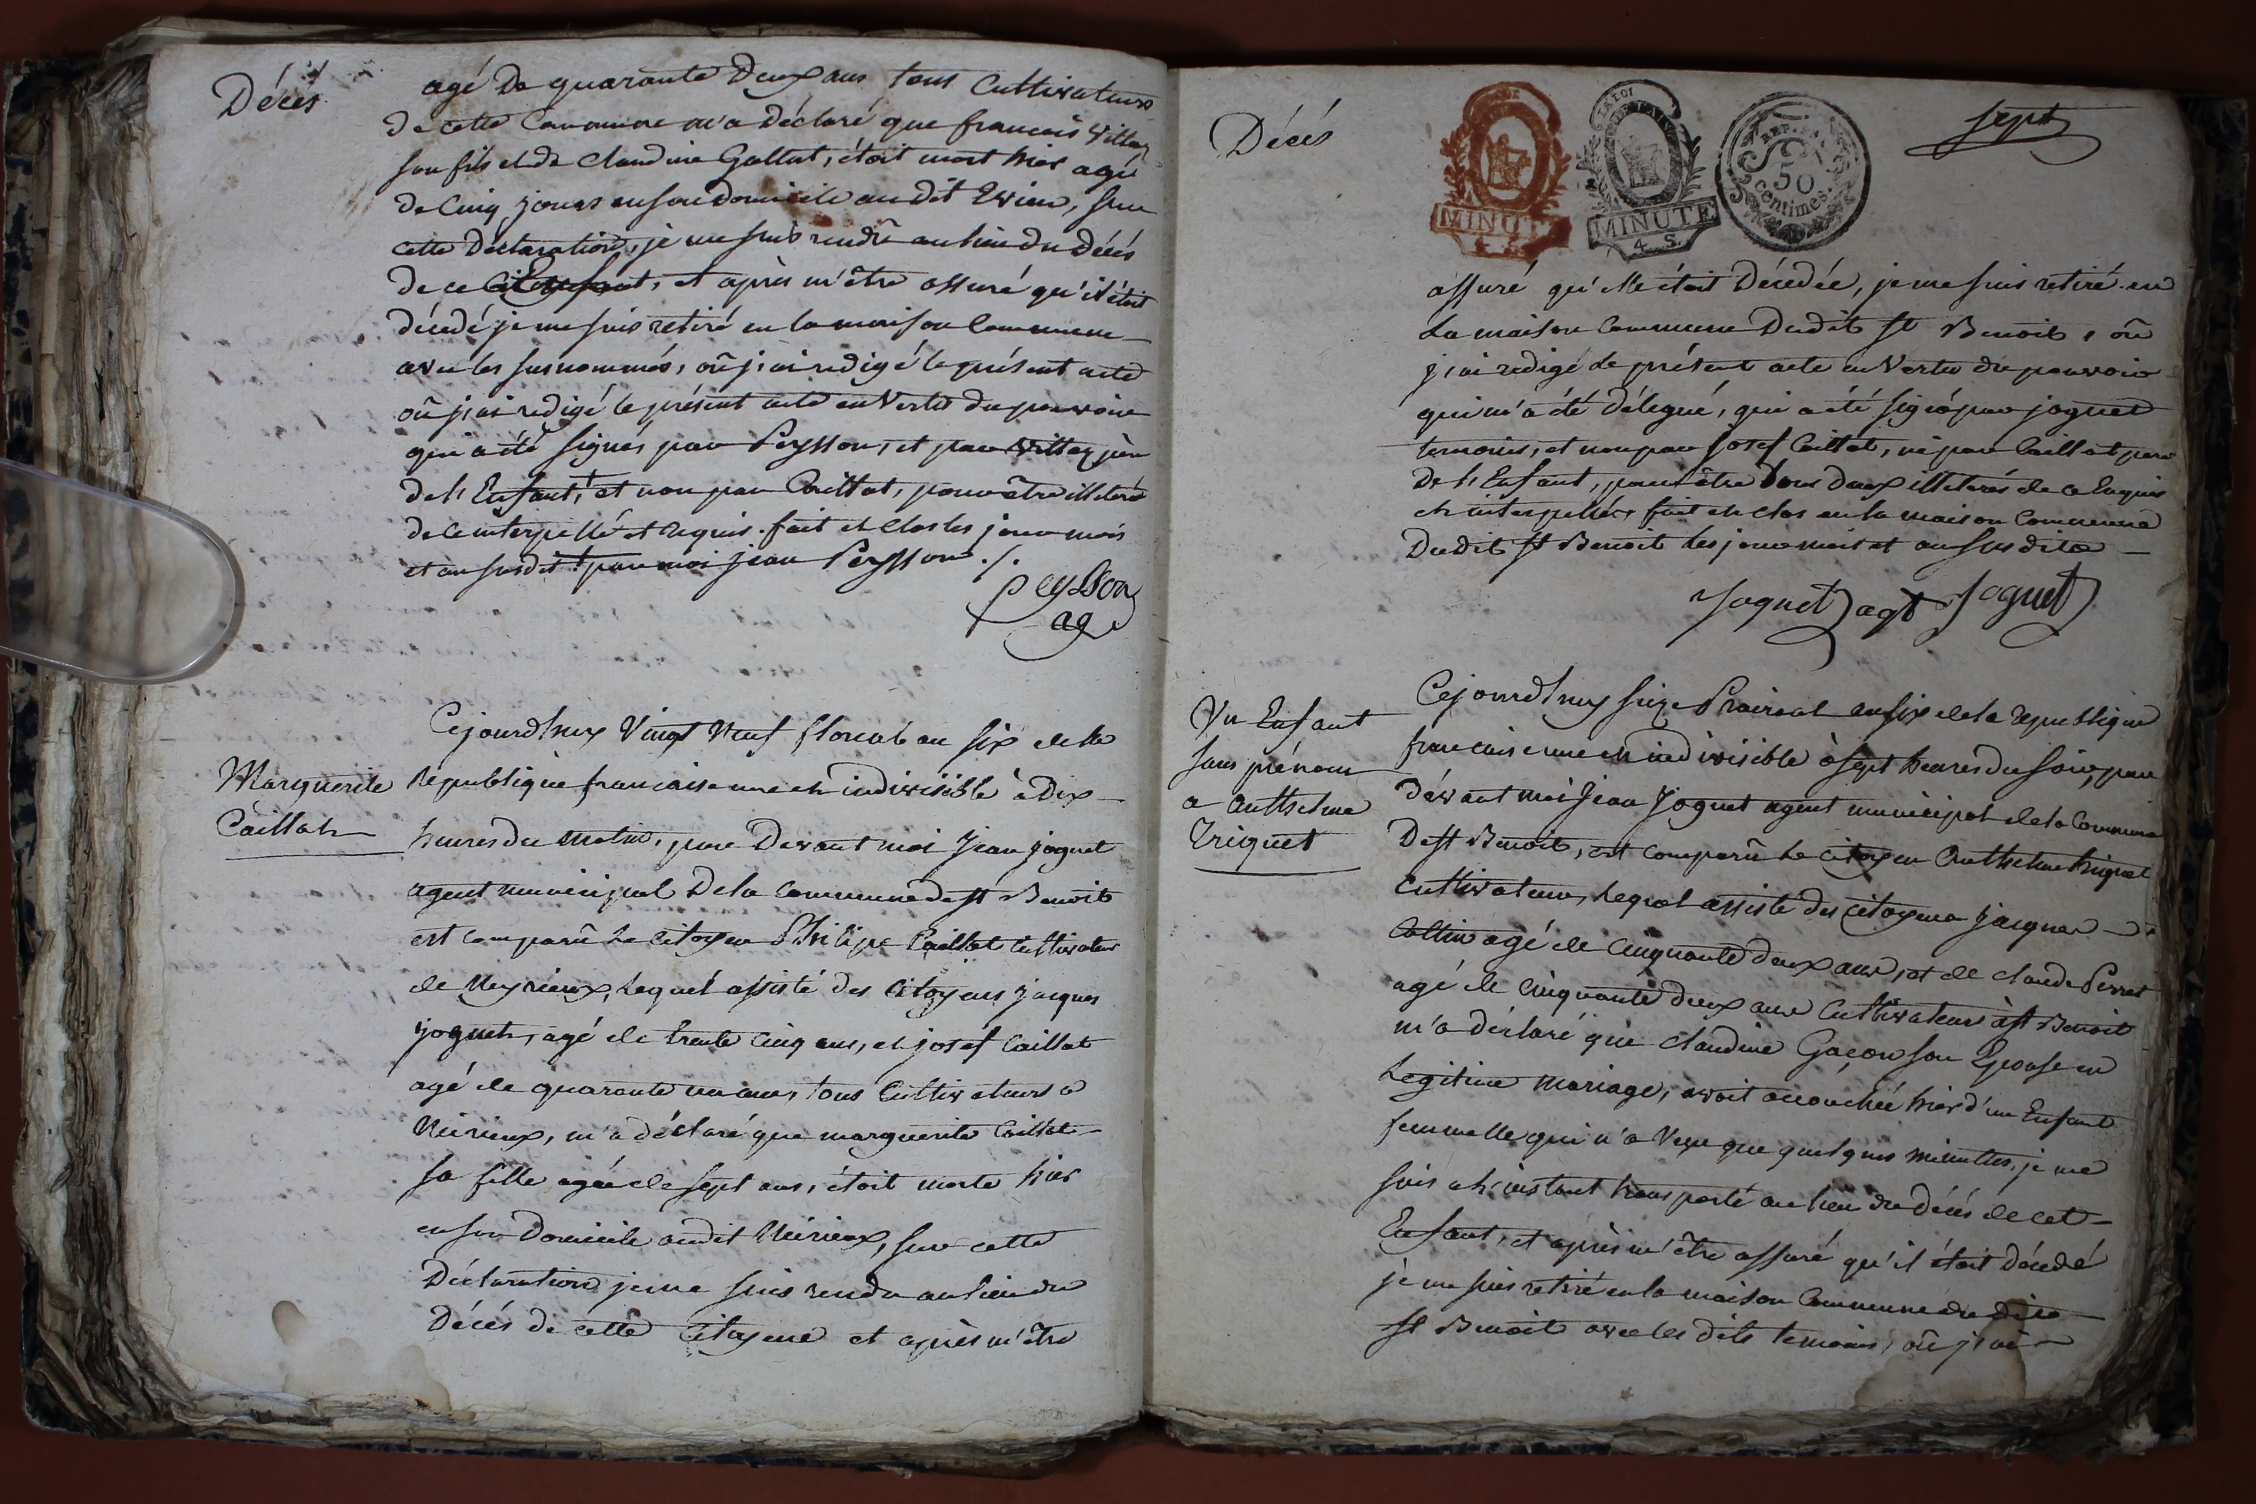 Décés
agé de quarante deux ans tous Cultivateurs
de cette Commune m'a déclaré que francois Vittoz
son fils et de Claudine Gallut, étoit mort hier agé
de Cinq jours en son domicile au dit Evieu, sur
cette déclaration, je me suis rendû au lieu du décés
de ce Enfant, et après m'être assuré qu'il étoit
décedé je me suis retiré en la maison Commune
avec les susnommés, oû j'ai redigé le présent acte
oû j'ai redigé le présent acte en Vertu du pouvoir
qui a été signés par Peysson, et par Vittoz père
de l'Enfant, et non par Caillat, pour être illiteré
de ce interpellé et requis. fait et clos les jour mois
et an susdit par moi jean Peysson ./.
Peysson
ag
Marguerite
Caillat
Cejourdhuy Vingt Neuf floreal an six de la
Republique francaise une et indivisible à Dix
heures du matin, par Devant moi Jean joguet
agent municipal De la commune de St Benoit
est comparû Le Citoyen Philipe Caillat Cultivateur
de Meyrieux, Lequel assisté des Citoyens jacques
joguet, agé de trente Cinq ans, et josef Caillat
agé de quarante un ans, tous Cultivateurs a
Meirieux, m'a déclaré que marguerite Caillat
sa fille agée de sept ans, étoit morte hier
en son Domicile audit Meirieux, sur cette
Déclaration je me suis rendu au lieu du
Décés de cette Citoyene et après m'être
Décés
LA LOI
MINUTE
MINUTE
4. S.
REP. FRA.
50
centimes.
sept
assuré qu'elle étoit Décedée, je me suis retiré en
La maison Commune Dudit St Benoit, oû
j'ai redigé le présent acte en Vertu du pouvoir
qui m'a été délegué, qui a été signé par joguet
temoins, et non par Josef Caillat, ni par Caillat pere
de l'Enfant, pour être tous deux illiterés de ce Enquis
et interpellés fait et clos en la maison Commune
Dudit St Benoit les jour mois et an susdits
Joguet agt Joguet
Un Enfant
sans prénom
a Anthelme
Triquet
Cejourdhuy seize Prairial an six de la republique
francaise une et indivisible à sept heures du soir, par
dévant moi Jean Joguet agent municipal de la Commune
De St Benoit, est comparû Le Citoyen Anthelme triquet
Cultivateur, Lequel assisté des Citoyens Jacques
Collin agé de Cinquante deux ans, et de claude Perret
agé de Cinquante deux ans Cultivateurs à St Benoit
m'a déclaré que Claudine Gacon son Epouse en
Legitime mariage, avoit accouchée hier d'un Enfant
femmelle qui n'a Veçu que quelques minuttes, je me
suis a l'instant transporté au lieu du décés de cet
Enfant, et après m'être assuré qu'il étoit décedé
je me suis retiré en la maison Commune du dit
St Benoit avec les dits temoins, oû j'ai